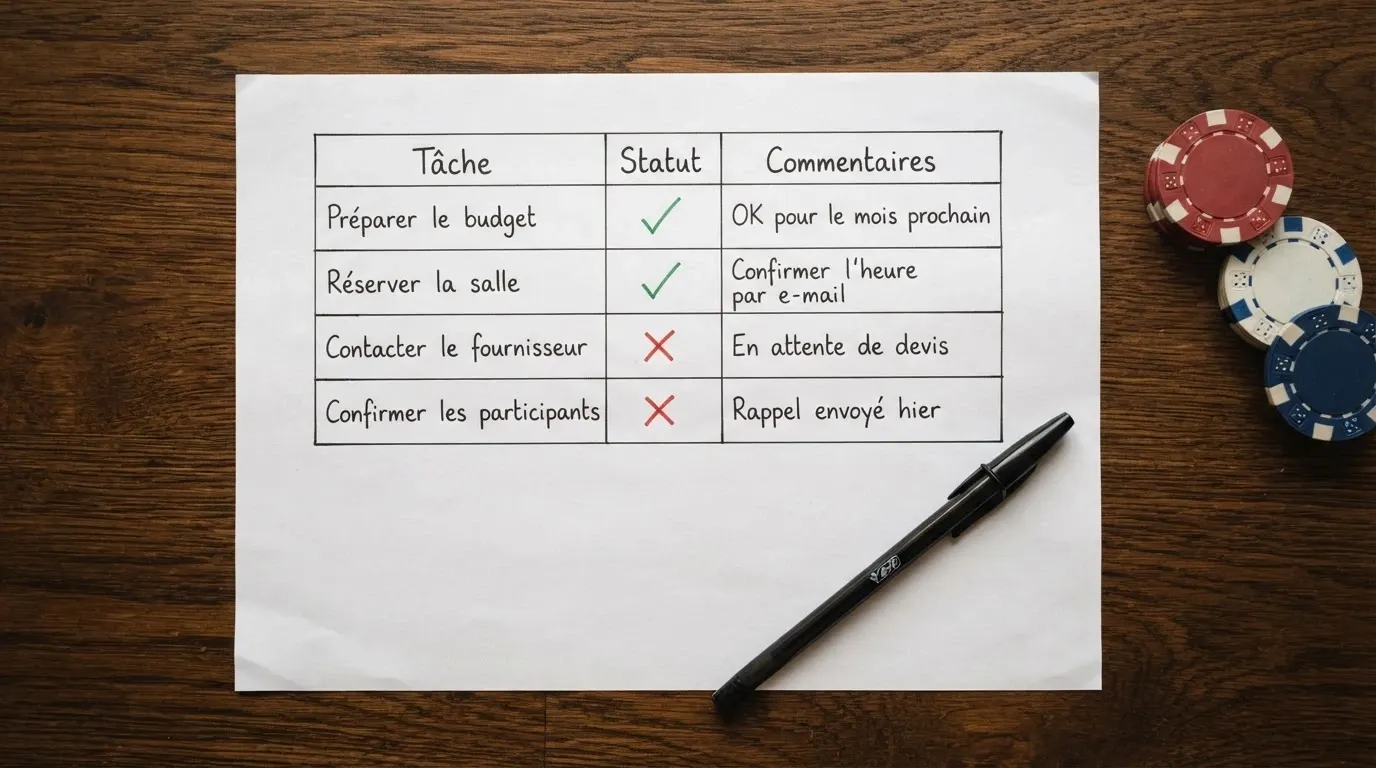 Tâche Statut Commentaires
Préparer le budget ✓ OK pour le mois prochain
Réserver la salle ✓ Confirmer l'heure
par e-mail
Contacter le fournisseur ✗ En attente de devis
Confirmer les participants ✗ Rappel envoyé hier